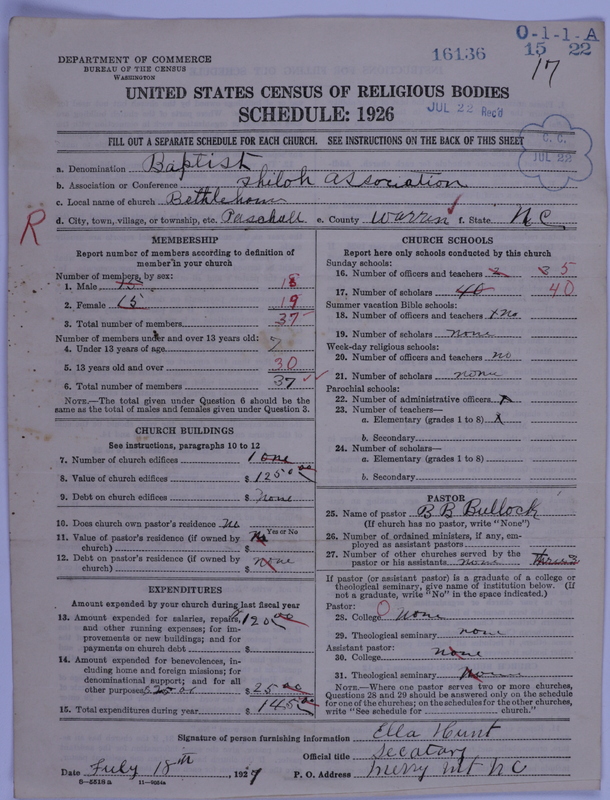 O-1-1-A
16136 15 22
17
DEPARTMENT OF COMMERCE
BUREAU OF THE CENSUS
WASHINGTON
UNITED STATES CENSUS OF RELIGIOUS BODIES
SCHEDULE: 1926
JUL 22 Rec'd
FILL OUT A SEPARATE SCHEDULE FOR EACH CHURCH. SEE INSTRUCTIONS ON THE BACK OF THIS SHEET
C. C.
JUL 22
a. Denomination Baptist
b. Association or Conference Shiloh association
c. Local name of church Bethlehem
d. City, town, village, or township, etc. Paschall e. County Warren f. State NC
R
MEMBERSHIP
Report number of members according to definition of
member in your church
Number of members, by sex:
1. Male 15 18
2. Female 15 19
3. Total number of members 37
Number of members under and over 13 years old:
4. Under 13 years of age 7
5. 13 years old and over 30
6. Total number of members 37
NOTE.—The total given under Question 6 should be
the same as the total of males and females given under Question 3.
CHURCH BUILDINGS
See instructions, paragraphs 10 to 12
7. Number of church edifices 1 one
8. Value of church edifices $ 1250 00
9. Debt on church edifices $ None
10. Does church own pastor's residence No
Yes or No
11. Value of pastor's residence (if owned by
church) $
12. Debt on pastor's residence (if owned by
church) $ none
EXPENDITURES
Amount expended by your church during last fiscal year
13. Amount expended for salaries, repairs, 120 00
and other running expenses; for im-
provements or new buildings; and for
payments on church debt $
14. Amount expended for benevolences, in-
cluding home and foreign missions; for
denominational support; and for all
other purposes $ 25 00
15. Total expenditures during year $ 145 00
CHURCH SCHOOLS
Report here only schools conducted by this church
Sunday schools:
16. Number of officers and teachers 5
17. Number of scholars 40 40
Summer vacation Bible schools:
18. Number of officers and teachers x No
19. Number of scholars None
Week-day religious schools:
20. Number of officers and teachers no
21. Number of scholars none
Parochial schools:
22. Number of administrative officers
23. Number of teachers—
a. Elementary (grades 1 to 8)
b. Secondary
24. Number of scholars—
a. Elementary (grades 1 to 8)
b. Secondary
PASTOR
25. Name of pastor B B Bullock
(If church has no pastor, write "None")
26. Number of ordained ministers, if any, em-
ployed as assistant pastors
27. Number of other churches served by the
pastor or his assistants none
If pastor (or assistant pastor) is a graduate of a college or
theological seminary, give name of institution below. (If
not a graduate, write "No" in the space indicated.)
Pastor:
28. College O None
29. Theological seminary none
Assistant pastor:
30. College none
31. Theological seminary
NOTE.—Where one pastor serves two or more churches,
Questions 28 and 29 should be answered only on the schedule
for one of the churches; on the schedules for the other churches,
write "See schedule for church."
Signature of person furnishing information Ella Hunt
Official title Secatary
Date July 18th, 1927 P. O. Address Merry Mt NC
8-5518a 11-9054a